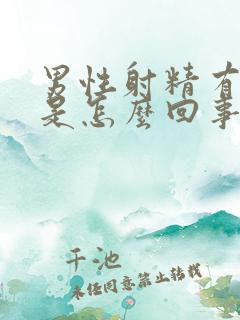 男性射精有
是怎麼回事
千池
未经同意禁止转载